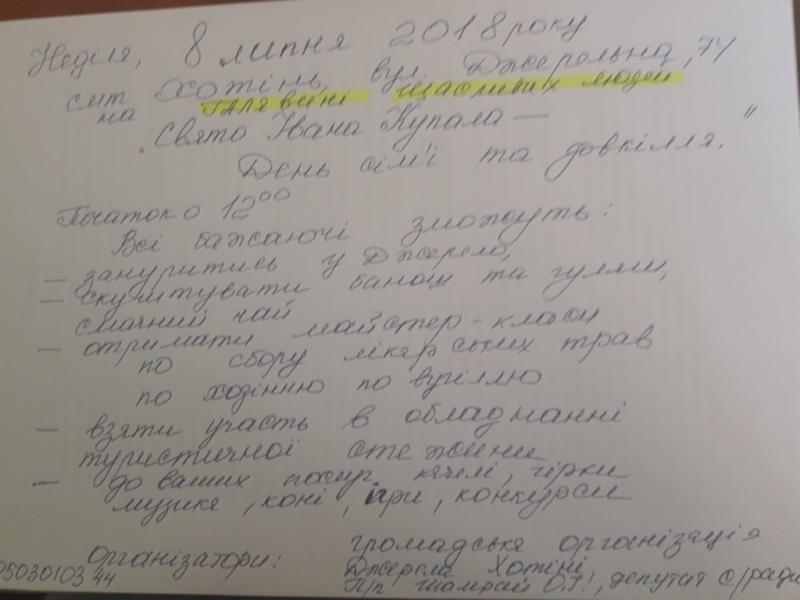 Неділя, 8 липня 2018 року
смт Хотінь, вул. Джерельна, 74
на галявині щасливих людей
„Свято Івана Купала —
День сім'ї та довкілля."
Початок о 12⁰⁰
Всі бажаючі зможуть:
— зануритись у Джерело,
— скуштувати банош та гуляш,
смачний чай
— отримати майстер-класи
по збору лікарських трав
по ходінню по вугіллю
— взяти участь в обладнанні
туристичної стежини
— до ваших послуг качелі, гірки
музика, коні, ігри, конкурси
організатори: громадська організація
Джерела Хотіні
0503010344 П/п Шамрай О.Г., депутат с/ради